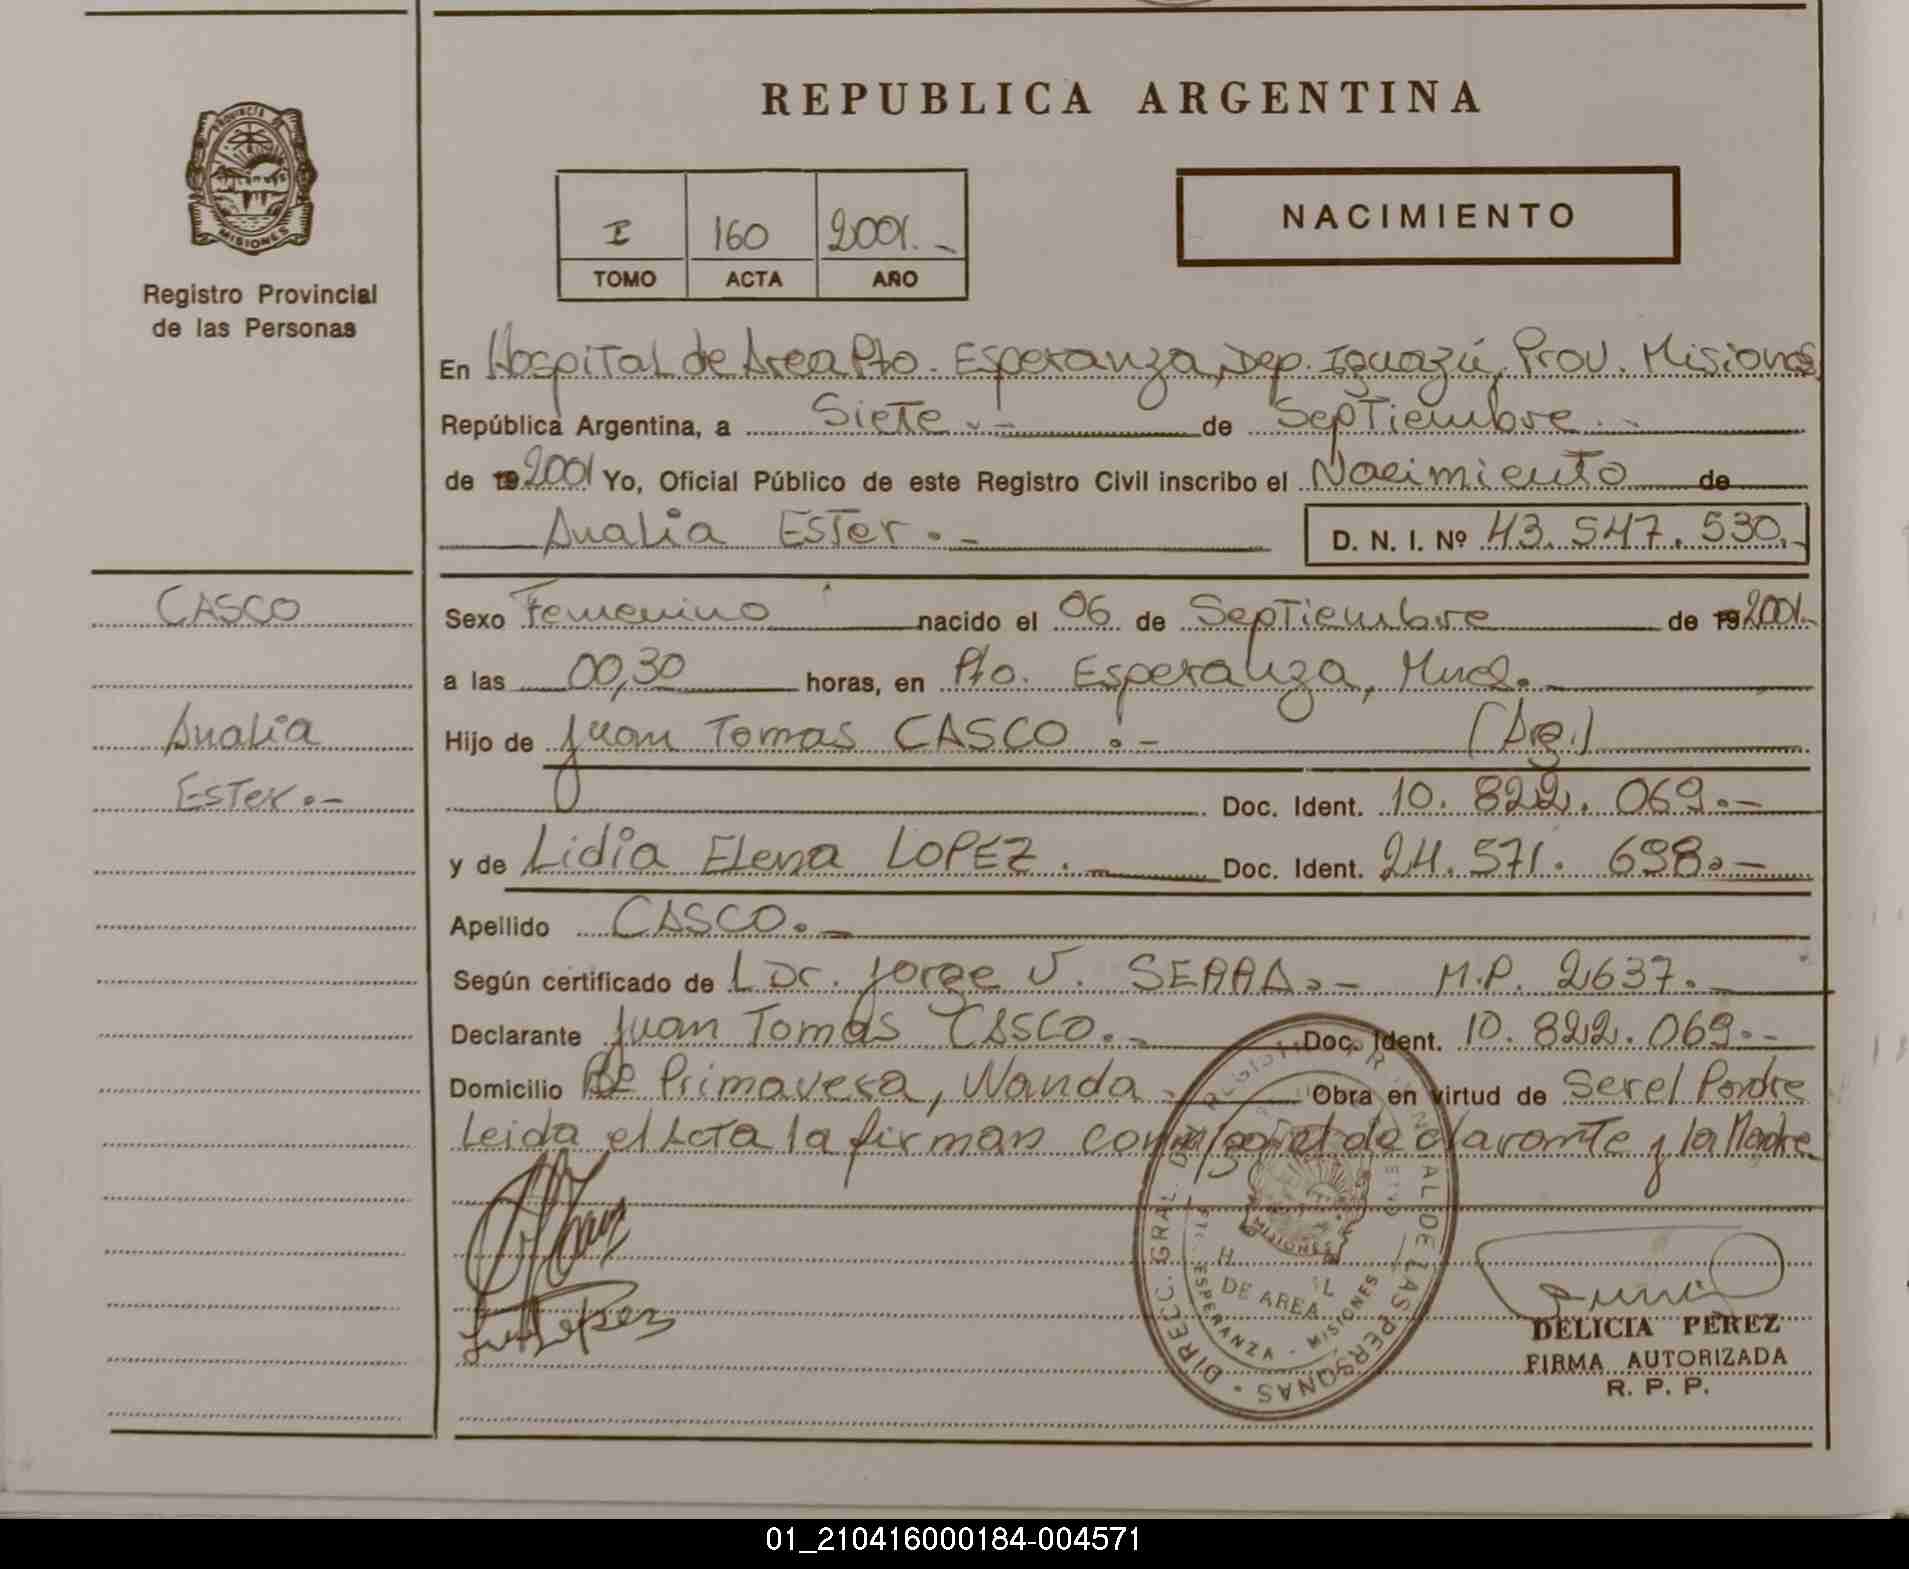 REPUBLICA ARGENTINA
PROVINCIA DE
MISIONES
Registro Provincial
de las Personas
I 160 2001.-
TOMO ACTA AÑO
NACIMIENTO
En Hospital de Area Pto. Esperanza, Dep. Iguazú, Prov. Misiones,
República Argentina, a Siete.- de Septiembre.-
de 19 2001 Yo, Oficial Público de este Registro Civil inscribo el Nacimiento de
Analia Ester.-
D. N. I. Nº 43.547.530.-
CASCO
Analia
Ester.-
Sexo Femenino nacido el 06 de Septiembre de 19 2001.-
a las 00,30 horas, en Pto. Esperanza, Mnes.
Hijo de Juan Tomas CASCO.- (Arg.)
Doc. Ident. 10.822.069.-
y de Lidia Elena LOPEZ. Doc. Ident. 24.571.698.-
Apellido CASCO.-
Según certificado de Dr. Jorge V. SERRA.- M.P. 2637.-
Declarante Juan Tomas CASCO.- Doc. Ident. 10.822.069.-
Domicilio Bº Primavera, Wanda.- Obra en virtud de Ser el Padre
Leida el Acta la firman conmigo el declarante y la Madre
DIRECC. GRAL. DEL REGISTRO PROVINCIAL DE LAS PERSONAS
MISIONES
DE AREA
ESPERANZA - MISIONES
Lopez
DELICIA PEREZ
FIRMA AUTORIZADA
R. P. P.
01_210416000184-004571